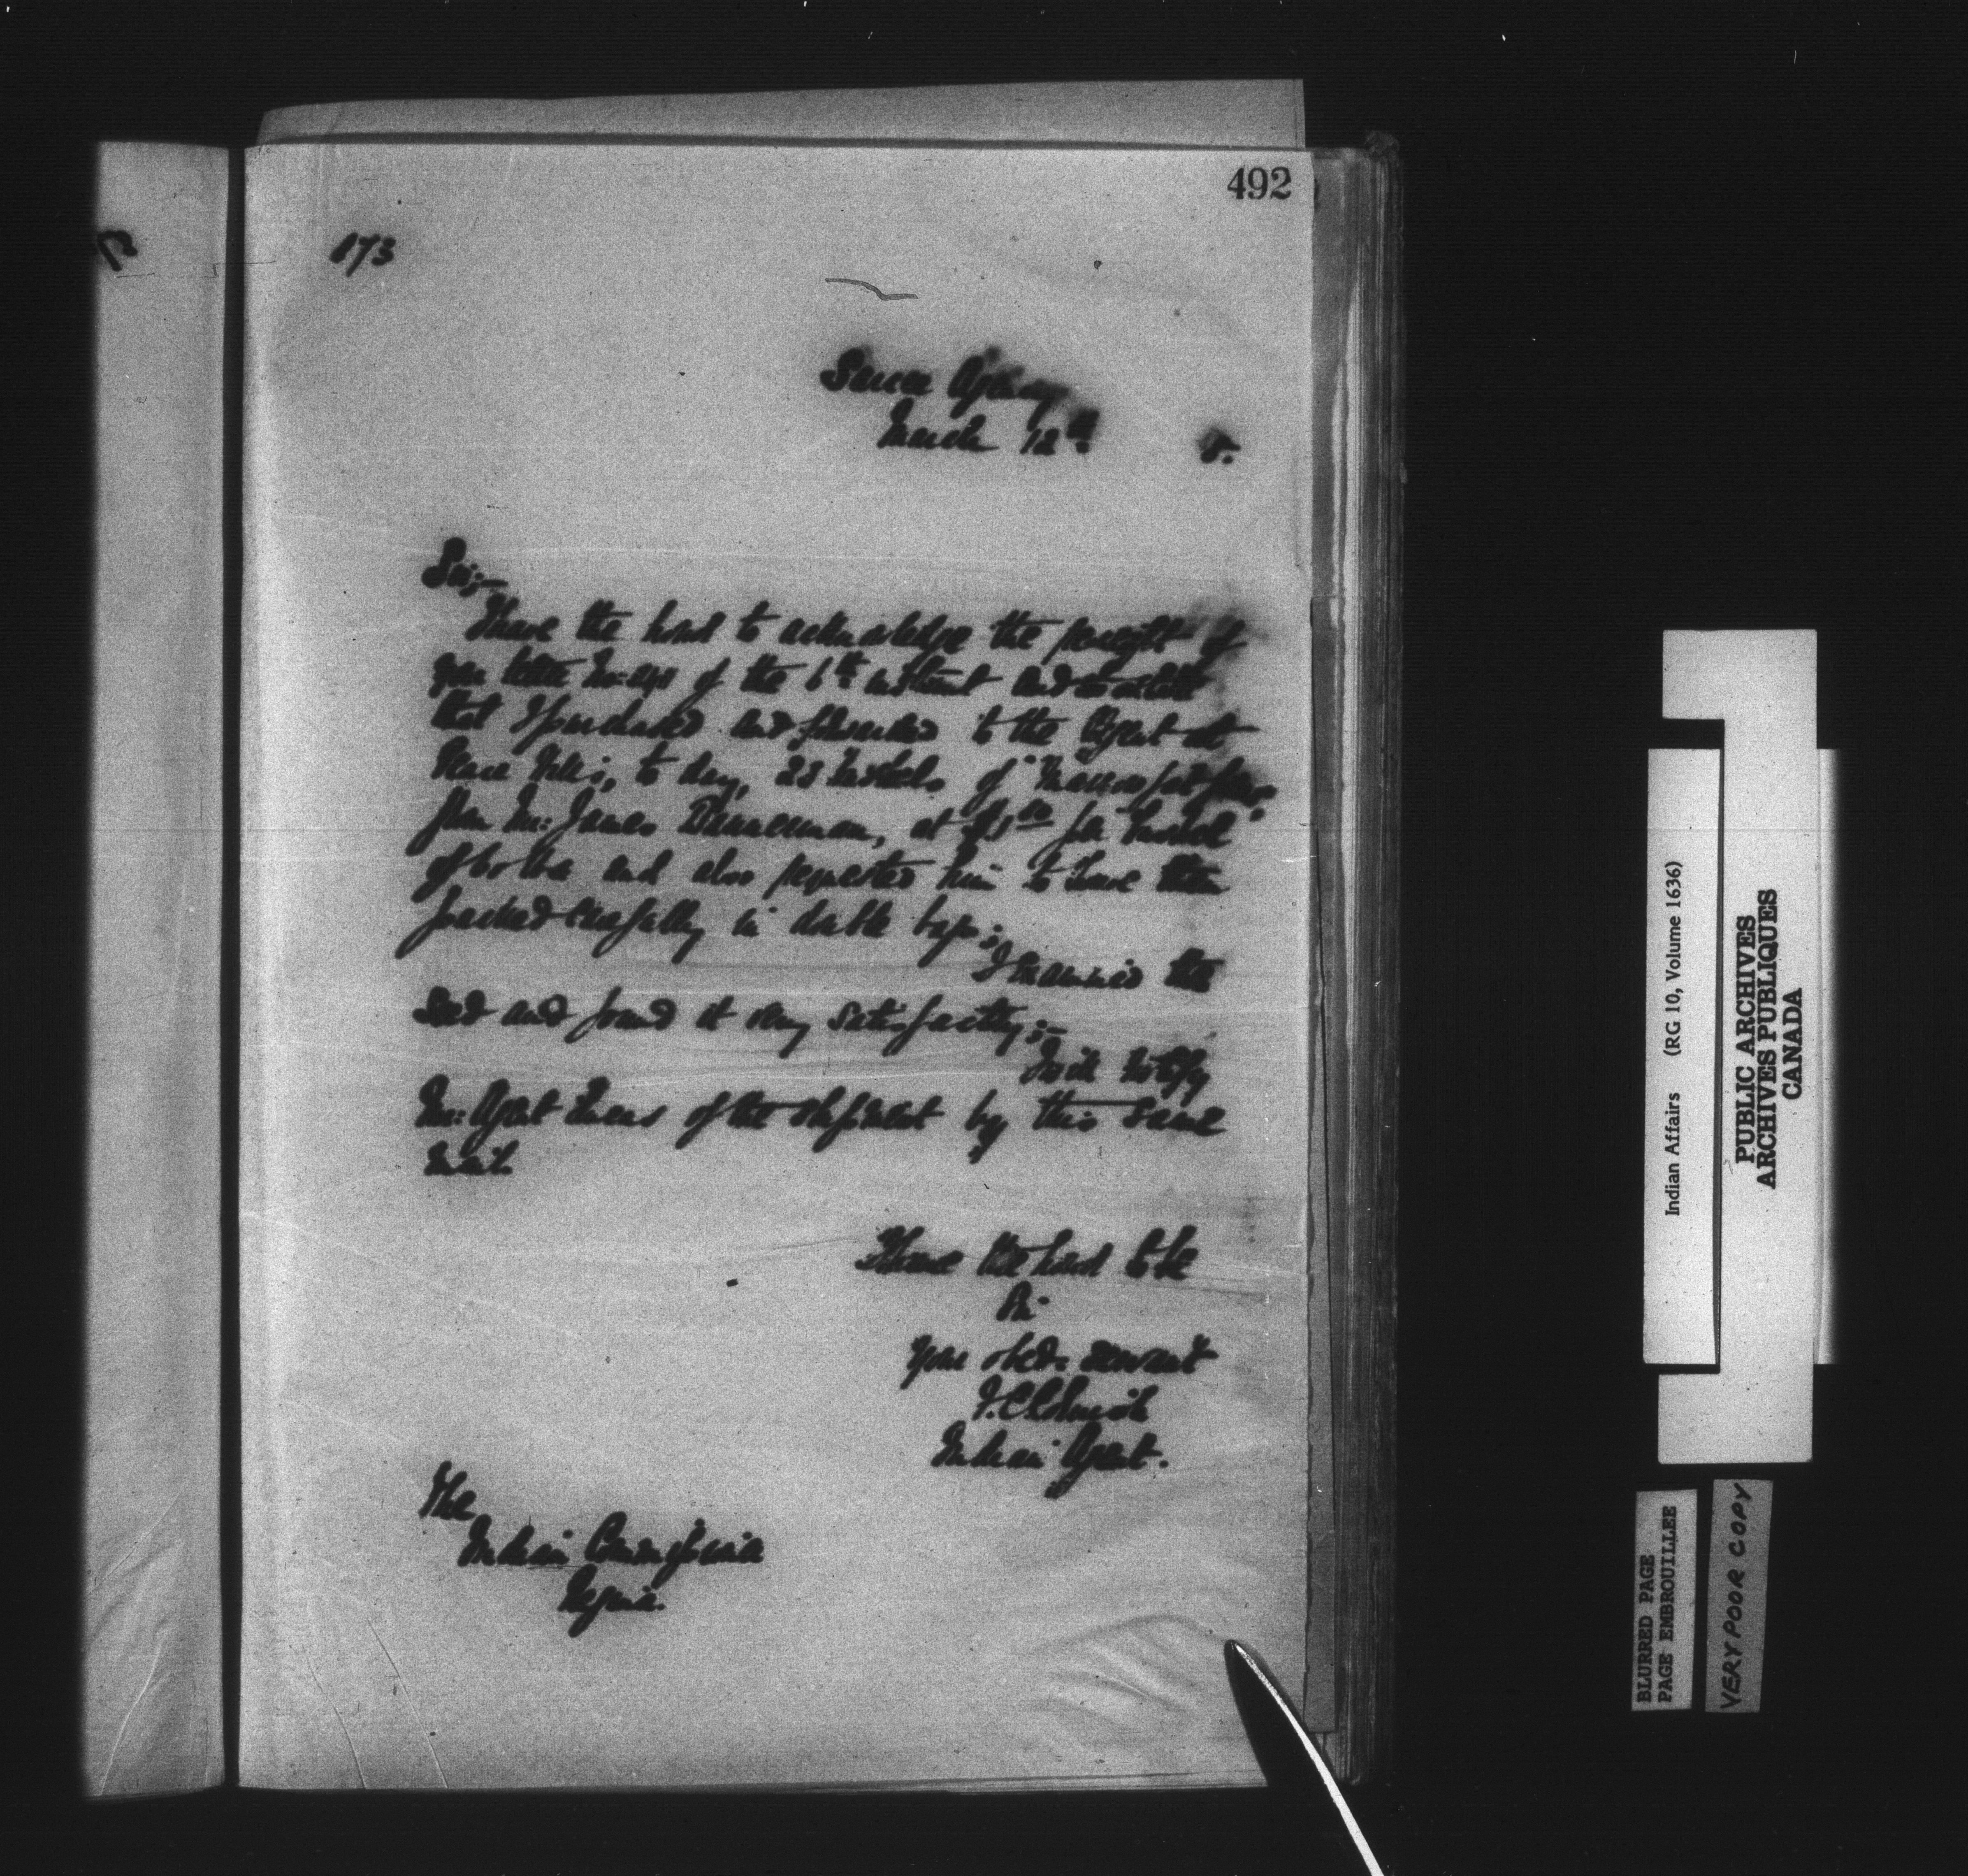 492
173
Agency
March 12th
5.
Sir;—
I have the honor to acknowledge the receipt of
your letter of the 6th instant and to state
that I purchased and forwarded to the Agent at
to day, 25 bushels of "Marrow fat peas"
from Mr: James Bannerman, at $1 per bushel
of 60 lbs and also requested him to have them
packed carefully in double bags;
I examined the
seed and found it very satisfactory;—
I will notify
Mr: Agent of the shipment by this same
mail.
I have the honor to be
Sir
Your obed: servant
Indian Agent.
The
Indian Commissioner
Regina.
Indian Affairs (RG 10, Volume 1636)
PUBLIC ARCHIVES
ARCHIVES PUBLIQUES
CANADA
BLURRED PAGE
PAGE EMBROUILLEE
VERY POOR COPY